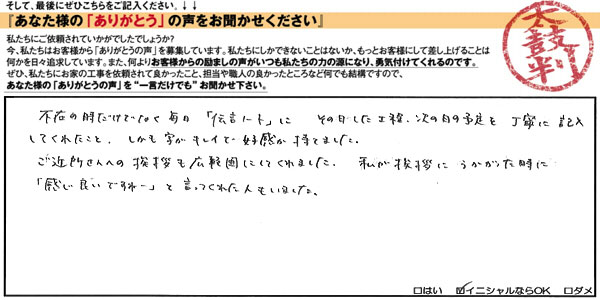 そして、最後にぜひこちらをご記入ください。↓↓
『あなた様の「ありがとう」の声をお聞かせください』
私たちにご依頼されていかがでしたでしょうか？
今、私たちはお客様から「ありがとうの声」を募集しています。私たちにしかできないことはないか、もっとお客様にして差し上げることは
何かを日々追求しています。また、何よりお客様からの励ましの声がいつも私たちの力の源になり、勇気付けてくれるのです。
ぜひ、私たちにお家の工事を依頼されて良かったこと、担当や職人の良かったところなど何でも結構ですので、
あなた様の「ありがとうの声」を“一言だけでも”お聞かせ下さい。
太鼓判
不在の時だけでなく毎日「伝言ノート」に その日した工程、次の日の予定を丁寧に記入
してくれたこと、しかも字がキレイで好感が持てました。
ご近所さんへの挨拶も広範囲にしてくれました。私が挨拶にうかがった時に
「感じ良いですねー」と言ってくれた人もいました。
□はい ☑イニシャルならOK □ダメ